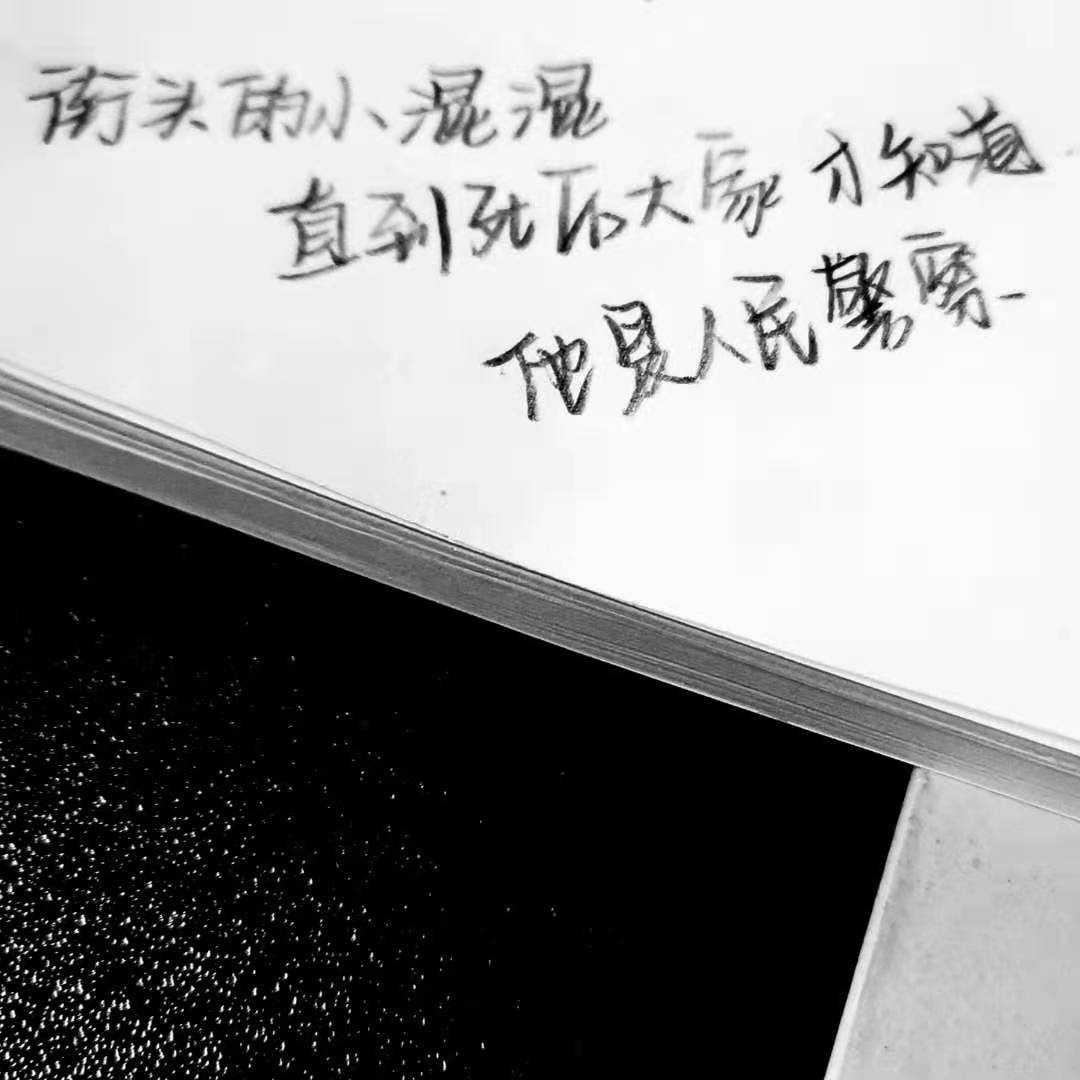 街头的小混混
直到死后大家才知道
他是人民警察